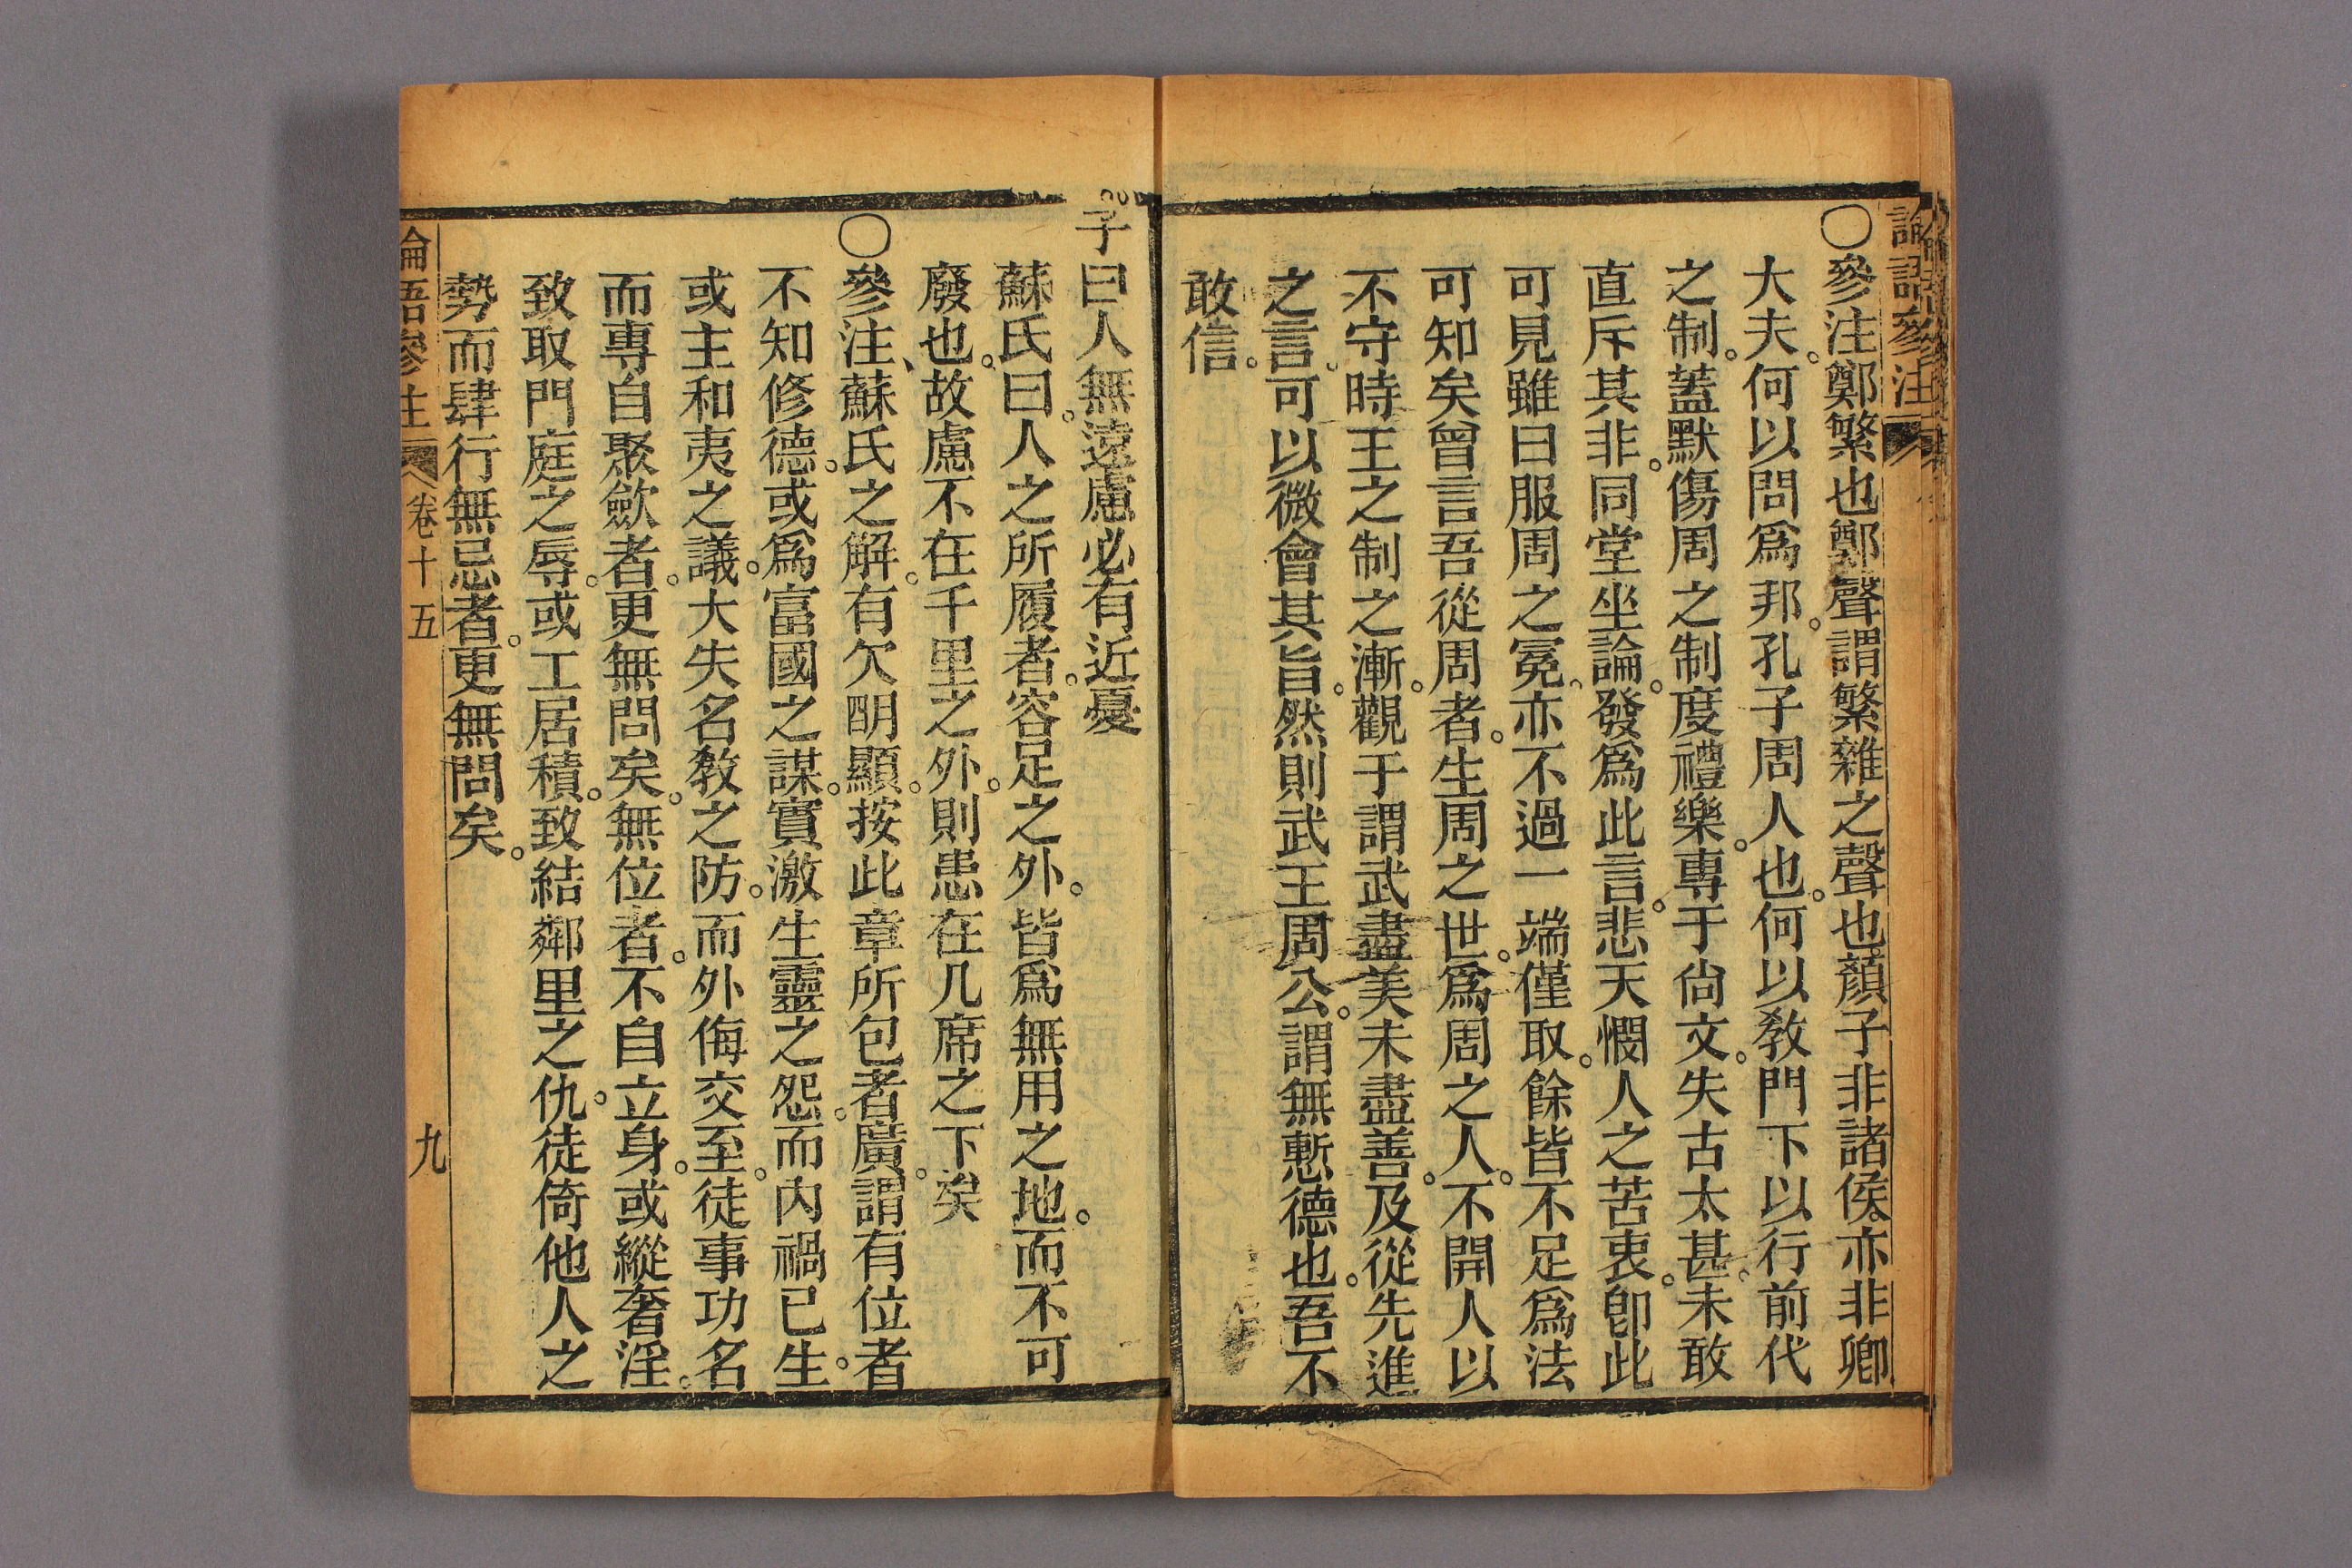 論語參注
〇參注鄭繁也鄭聲謂繁雜之聲也。顏子非諸侯。亦非卿
大夫。何以問爲邦。孔子周人也。何以敎門下以行前代
之制。蓋默傷周之制度禮樂。專于尙文。失古太甚。未敢
直斥其非。同堂坐論。發爲此言。悲天憫人之苦衷。卽此
可見雖曰服周之冕、亦不過一端僅取。餘皆不足爲法
可知矣曾言吾從周者。生周之世。爲周之人。不開人以
不守時王之制之漸。觀于謂武盡美未盡善。及從先進
之言。可以微會其旨。然則武王周公。謂無慙德也。吾不
敢信。
子曰人無遠慮必有近憂
蘇氏曰。人之所履者。容足之外。皆爲無用之地。而不可
廢也。故慮不在千里之外。則患在几席之下矣
〇參注、蘇氏之解。有欠明顯。按此章所包者廣。謂有位者
不知修德。或爲富國之謀。實激生靈之怨。而內禍已生。
或主和夷之議。大失名敎之防。而外侮交至。徒事功名
而專自聚歛者。更無問矣。無位者。不自立身。或縱奢淫。
致取門庭之辱。或工居積。致結鄰里之仇。徒倚他人之
勢而肆行無忌者。更無問矣。
論語參注
卷十五
九